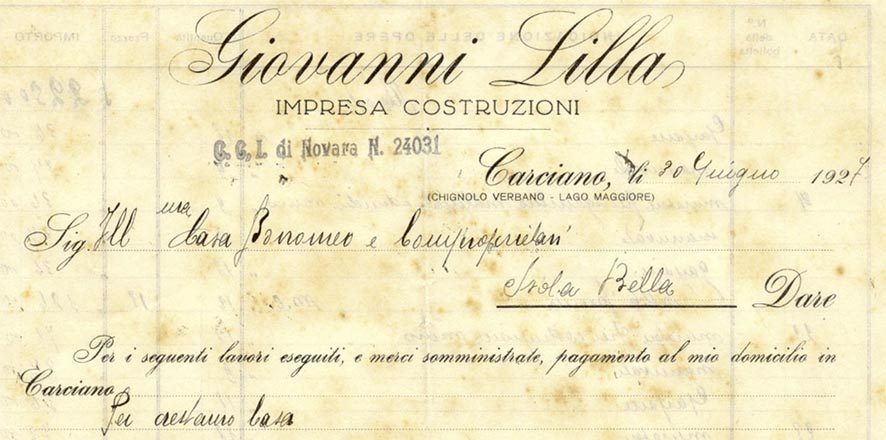 Giovanni Lilla
IMPRESA COSTRUZIONI
C. C. I. di Novara N. 24031
Carciano, li 30 Giugno 1927
(CHIGNOLO VERBANO - LAGO MAGGIORE)
Sig. Ill ma Casa Borromeo e Comproprietari
Isola Bella Dare
Per i seguenti lavori eseguiti, e merci somministrate, pagamento al mio domicilio in
Carciano
Per restauro Casa